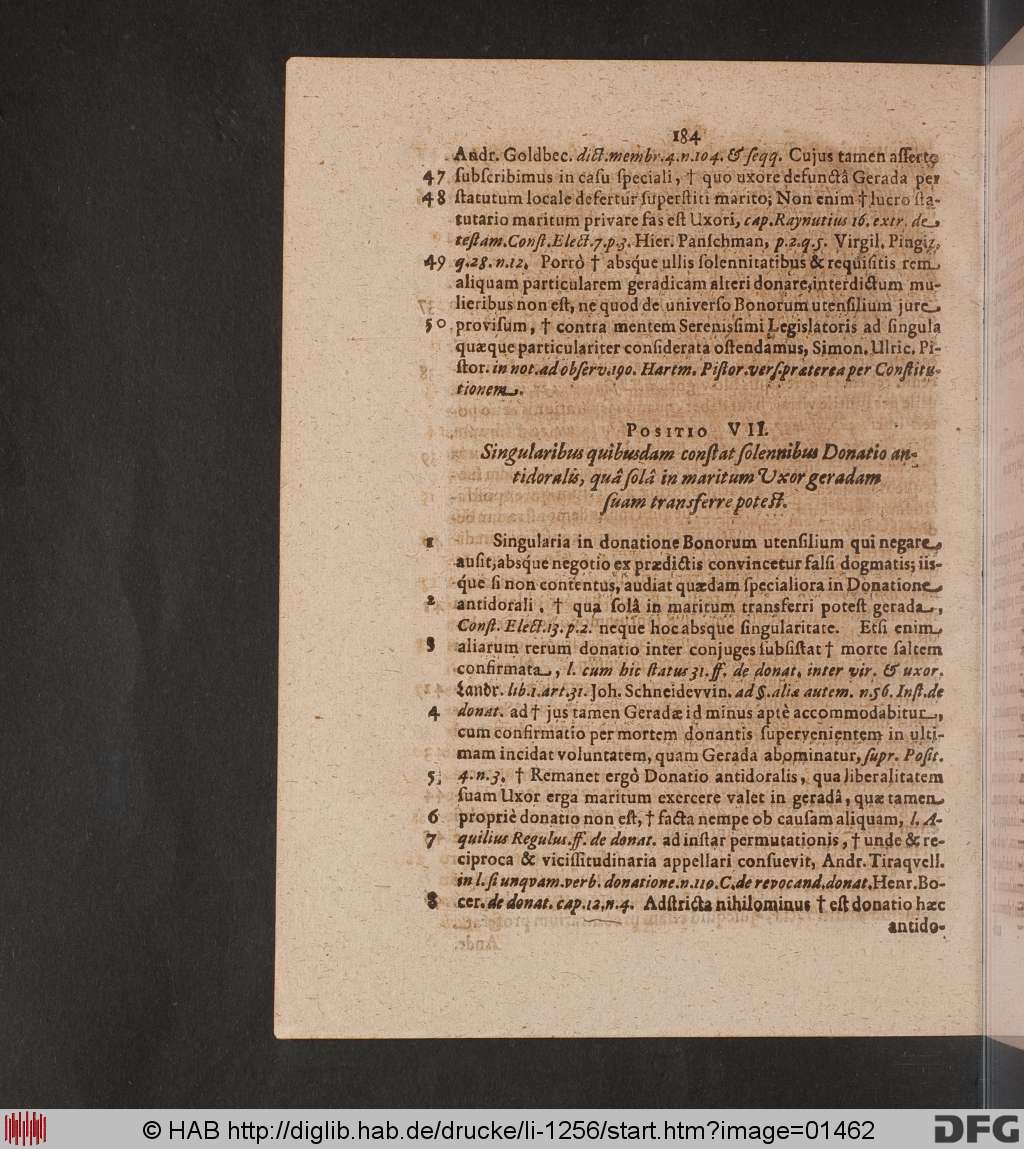 184
Andr. Goldbec. dict. membr. 4. n. 104. & seqq. Cujus tamen asserto
47 subscribimus in casu speciali, † quo uxore defunctâ Gerada per
48 statutum locale defertur superstiti marito; Non enim † lucro sta-
tutario maritum privare fas est Uxori, cap. Raynutius 16. extr. de
testam. Const. Elect. 7. p. 3. Hier. Panschman, p. 2. q. 5. Virgil. Pingiz.
49 q. 28. n. 12. Porrò † absq́ue ullis solennitatibus & requisitis rem
aliquam particularem geradicam alteri donare, interdictum mu-
lieribus non est, ne quod de universo Bonorum utensilium jure
50 provisum, † contra mentem Serenissimi Legislatoris ad singula
quæque particulariter considerata ostendamus, Simon. Ulric. Pi-
stor. in not. ad observ. 190. Hartm. Pistor. vers. præterea per Constitu-
tionem.
POSITIO VII.
Singularibus quibusdam constat solennibus Donatio an-
tidoralis, quâ solâ in maritum Uxor geradam
suam transferre potest.
1 Singularia in donatione Bonorum utensilium qui negare
ausit, absq́ue negotio ex prædictis convincetur falsi dogmatis; iis-
q́ue si non contentus, audiat quædam specialiora in Donatione
2 antidorali, † qua solâ in maritum transferri potest gerada,
Const. Elect. 13. p. 2. neque hoc absque singularitate. Etsi enim
3 aliarum rerum donatio inter conjuges subsistat † morte saltem
confirmata, l. cum hic status 31. ff. de donat. inter vir. & uxor.
Landr. lib. 1. art. 31. Joh. Schneidevvin. ad §. aliæ autem. n. 56. Inst. de
4 donat. ad † jus tamen Geradæ id minus aptè accommodabitur,
cum confirmatio per mortem donantis supervenientem in ulti-
mam incidat voluntatem, quam Gerada abominatur, supr. Posit.
5 4. n. 3. † Remanet ergò Donatio antidoralis, qua liberalitatem
suam Uxor erga maritum exercere valet in geradâ, quæ tamen
6 propriè donatio non est, † facta nempe ob causam aliquam, l. A-
7 quilius Regulus. ff. de donat. ad instar permutationis, † unde & re-
ciproca & vicissitudinaria appellari consuevit, Andr. Tiraqvell.
in l. si unqvam. verb. donatione. n. 110. C. de revocand. donat. Henr. Bo-
8 cer. de donat. cap. 12. n. 4. Adstricta nihilominus † est donatio hæc
antido-
© HAB http://diglib.hab.de/drucke/li-1256/start.htm?image=01462
DFG